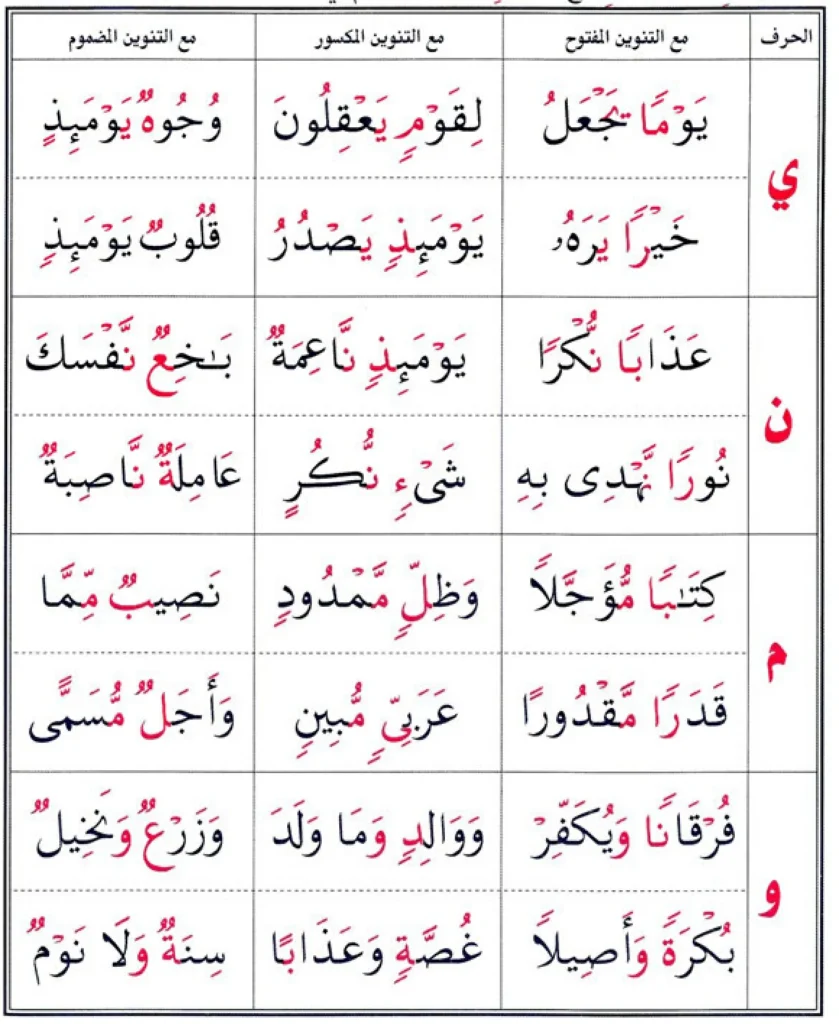 الحرف مع التنوين المفتوح مع التنوين المكسور مع التنوين المضموم
ي
يَوْمًا يَجْعَلُ لِقَوْمٍ يَعْقِلُونَ وُجُوهٌ يَوْمَئِذٍ
خَيْرًا يَرَهُۥ يَوْمَئِذٍ يَصْدُرُ قُلُوبٌ يَوْمَئِذٍ
ن
عَذَابًا نُّكْرًا يَوْمَئِذٍ نَّاعِمَةٌ بَـٰخِعٌ نَّفْسَكَ
نُورًا نَّهْدِى بِهِ شَىْءٍ نُّكُرٍ عَامِلَةٌ نَّاصِبَةٌ
م
كِتَـٰبًا مُّؤَجَّلاً وَظِلٍّ مَّمْدُودٍ نَصِيبٌ مِّمَّا
قَدَرًا مَّقْدُورًا عَرَبِىٍّ مُّبِينٍ وَأَجَلٌ مُّسَمًّى
و
فُرْقَانًا وَيُكَفِّرْ وَوَالِدٍ وَمَا وَلَدَ وَزَرْعٌ وَنَخِيلٌ
بُكْرَةً وَأَصِيلاً غُصَّةٍ وَعَذَابًا سِنَةٌ وَلَا نَوْمٌ